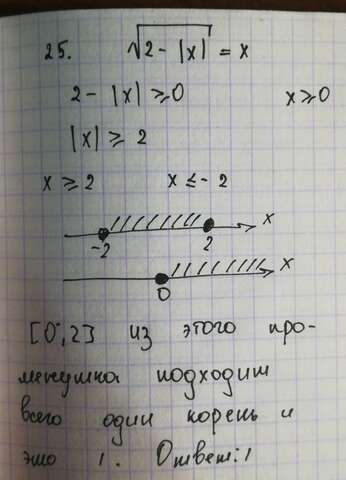 25. √(2 - |x|) = x
2 - |x| ≥ 0 x ≥ 0
|x| ≥ 2
x ≥ 2 x ≤ - 2
x
-2 2
x
0
[0;2] из этого про-
межутка подходит
всего один корень и
это 1. Ответ: 1